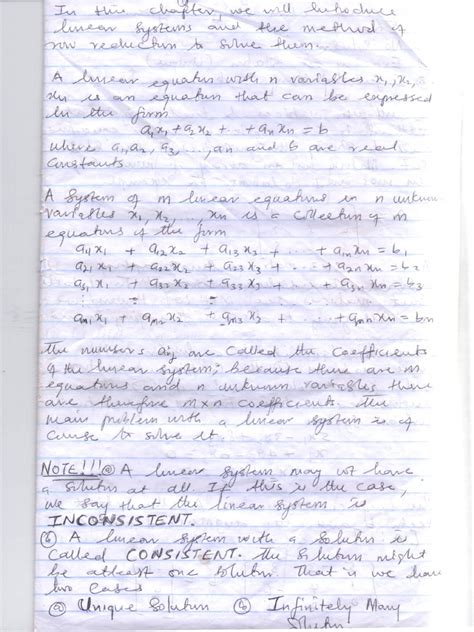 In this chapter, we will introduce
linear systems and the method of
row reduction to solve them.
A linear equation with n variables x₁, x₂,
xn is an equation that can be expressed
in the form
a₁x₁ + a₂x₂ + ·· + anxn = b
where a₁, a₂, a₃, ..., an and b are real
constants.
A system of m linear equations in n unknown
variables x₁, x₂, ... xn is a collection of m
equations of the form
a₁₁x₁ + a₁₂x₂ + a₁₃x₃ + ··· + a₁nxn = b₁
a₂₁x₁ + a₂₂x₂ + a₂₃x₃ + ··· + a₂nxn = b₂
a₃₁x₁ + a₃₂x₂ + a₃₃x₃ + ··· + a₃nxn = b₃
am₁x₁ + am₂x₂ + am₃x₃ + ··· + amnxn = bm
The numbers aij are called the coefficients
of the linear system; because there are m
equations and n unknown variables there
are therefore mxn coefficients. The
main problem with a linear system is of
course to solve it.
NOTE!!! ⓐ A linear system may not have
a solution at all. If this is the case,
we say that the linear system is
INCONSISTENT.
ⓑ A linear system with a solution is
called CONSISTENT. The solution might
be atleast one solution. That is we have
two cases
ⓐ Unique Solution ⓑ Infinitely Many
Solution